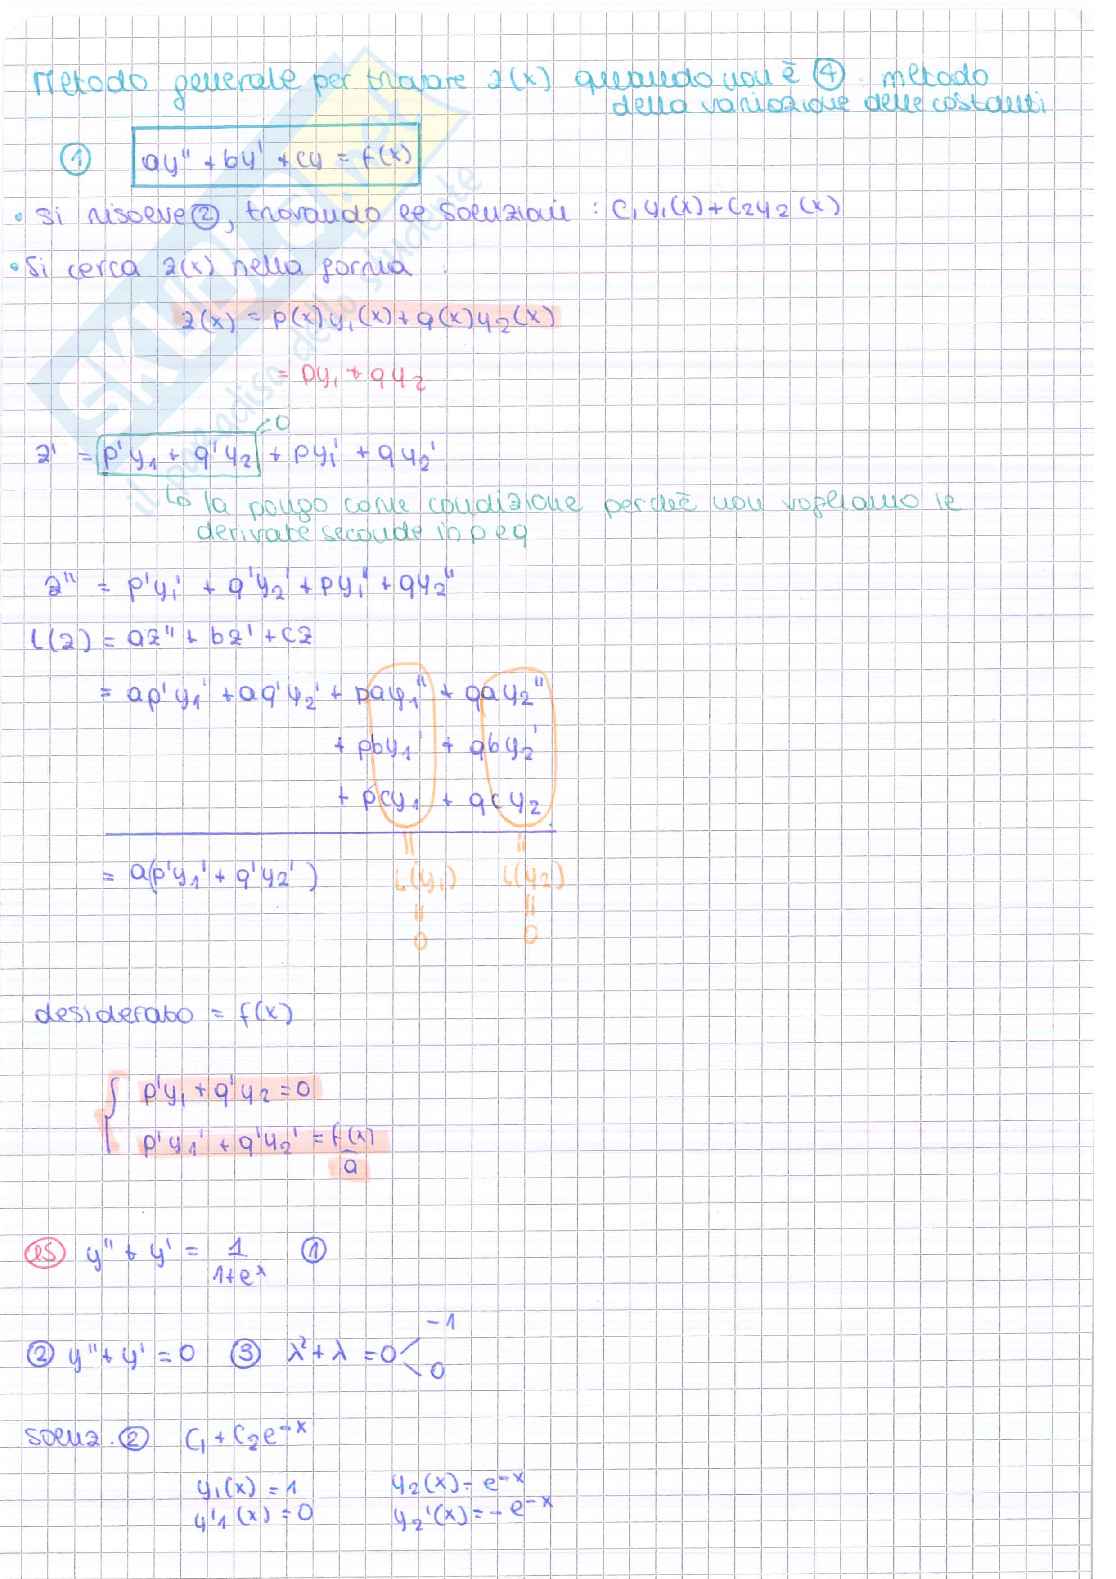 Metodo generale per trovare z(x) quando non è ④. metodo
della variazione delle costanti
① ay" + by' + cy = f(x)
• si risolve ②, trovando le soluzioni : C₁y₁(x)+C₂y₂(x)
• Si cerca z(x) nella forma
z(x) = p(x)y₁(x)+q(x)y₂(x)
= py₁ + qy₂
=0
z' = p'y₁ + q'y₂ + py₁' + qy₂'
↳ la pongo come condizione perchè non vogliamo le
derivate seconde in p e q
z" = p'y₁' + q'y₂' + py₁" + qy₂"
L(z) = az" + bz' + cz
= ap'y₁' + aq'y₂' + pay₁" + qay₂"
+ pby₁' + qby₂'
+ pcy₁ + qcy₂
= a(p'y₁' + q'y₂') = L(y₁) = L(y₂)
= =
0 0
desiderato = f(x)
{ p'y₁ + q'y₂ = 0
p'y₁' + q'y₂' = f(x)/a
ES y" + y' = 1/(1+eˣ) ①
② y" + y' = 0 ③ λ² + λ = 0 < -1
0
soluz. ② C₁ + C₂e⁻ˣ
y₁(x) = 1 y₂(x) = e⁻ˣ
y'₁(x) = 0 y₂'(x) = -e⁻ˣ